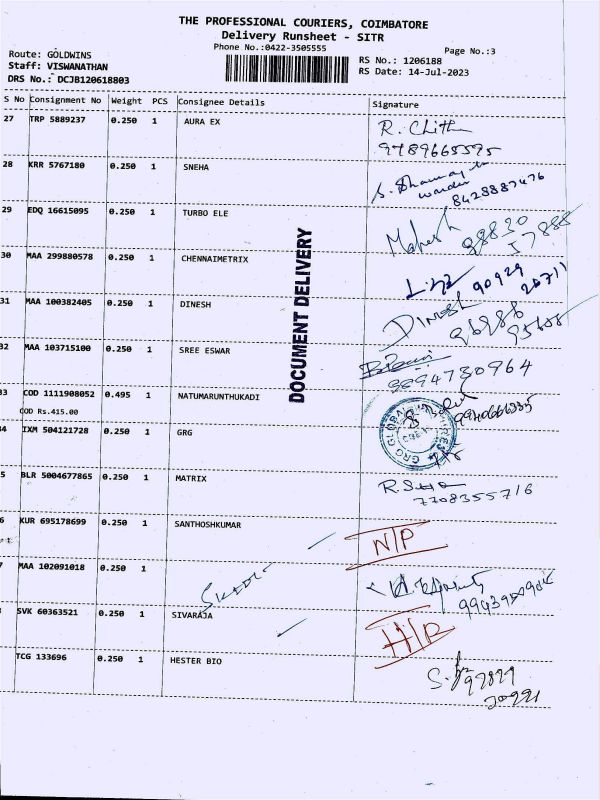 THE PROFESSIONAL COURIERS, COIMBATORE
Delivery Runsheet - SITR
Phone No.:0422-3505555
Page No.:3
Route: GOLDWINS
RS No.: 1206188
Staff: VISWANATHAN
RS Date: 14-Jul-2023
DRS No.: DCJB120618803
S No Consignment No Weight PCS Consignee Details Signature
27 TRP 5889237 0.250 1 AURA EX
R. Chith
9789665595
28 KRR 5767180 0.250 1 SNEHA
warden
8428887476
29 EDQ 16615095 0.250 1 TURBO ELE
Mahesh 98830
17888
30 MAA 299880578 0.250 1 CHENNAIMETRIX
90929
20711
31 MAA 100382405 0.250 1 DINESH
Dinesh
32 MAA 103715100 0.250 1 SREE ESWAR
9894730964
33 COD 1111908052 0.495 1 NATUMARUNTHUKADI
COD Rs.415.00
34 IXM 504121728 0.250 1 GRG
GRG GLOBAL
5 BLR 5004677865 0.250 1 MATRIX
7708355716
6 KUR 695178699 0.250 1 SANTHOSHKUMAR
N/P
7 MAA 102091018 0.250 1
8 SVK 60363521 0.250 1 SIVARAJA
H/B
TCG 133696 0.250 1 HESTER BIO
97877
20921
DOCUMENT DELIVERY